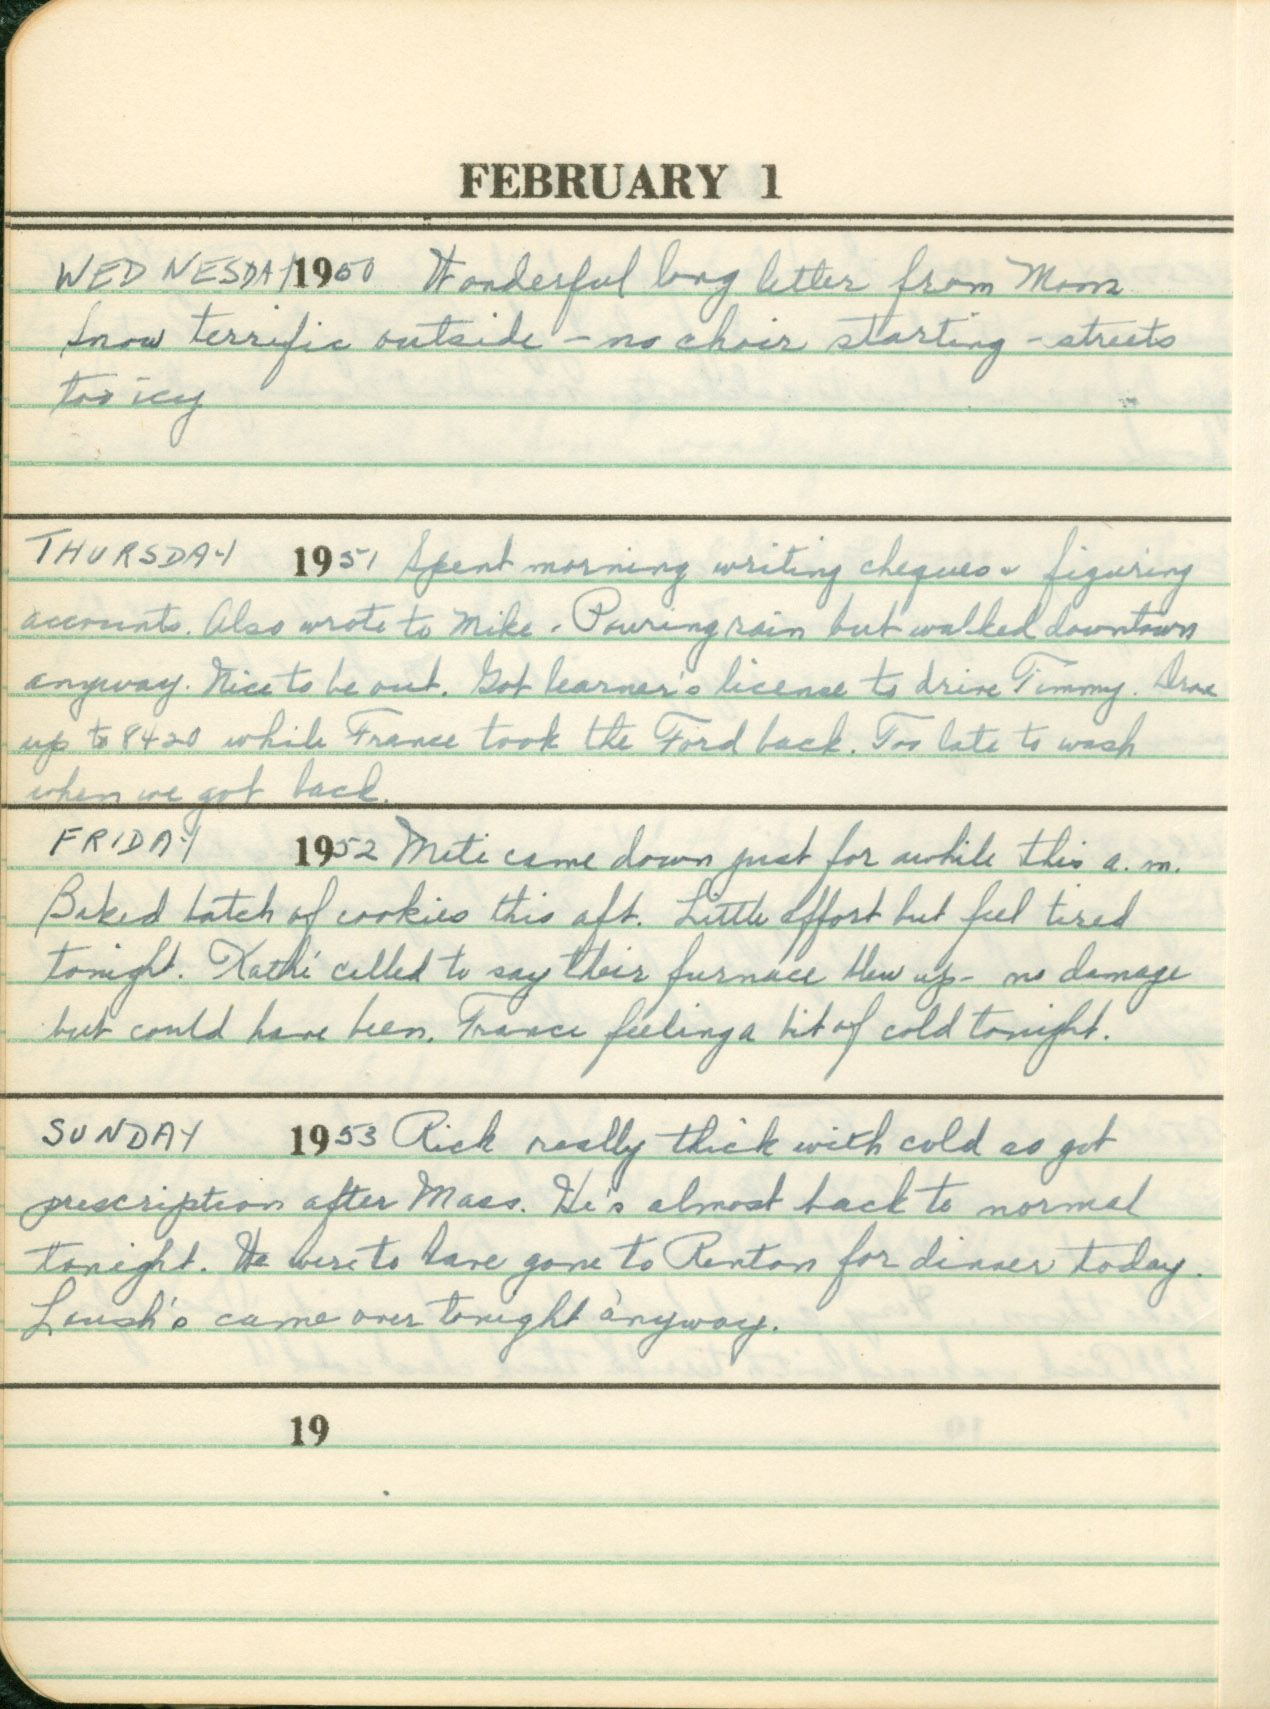 FEBRUARY 1
WEDNESDAY 1950 Wonderful long letter from Mom
Snow terrific outside - no choir starting - streets
too icy
THURSDAY 1951 Spent morning writing cheques & figuring
accounts. Also wrote to Mike. Pouring rain but walked downtown
anyway. Nice to be out. Got learner's license to drive Timmy. Drove
up to 8420 while France took the Ford back. Too late to wash
when we got back.
FRIDAY 1952 Meti came down just for awhile this a.m.
Baked batch of cookies this aft. Little effort but feel tired
tonight. Kathi called to say their furnace blew up - no damage
but could have been. France feeling a bit of cold tonight.
SUNDAY 1953 Rick really thick with cold so got
prescription after Mass. He's almost back to normal
tonight. We were to have gone to Renton for dinner today.
came over tonight anyway.
19